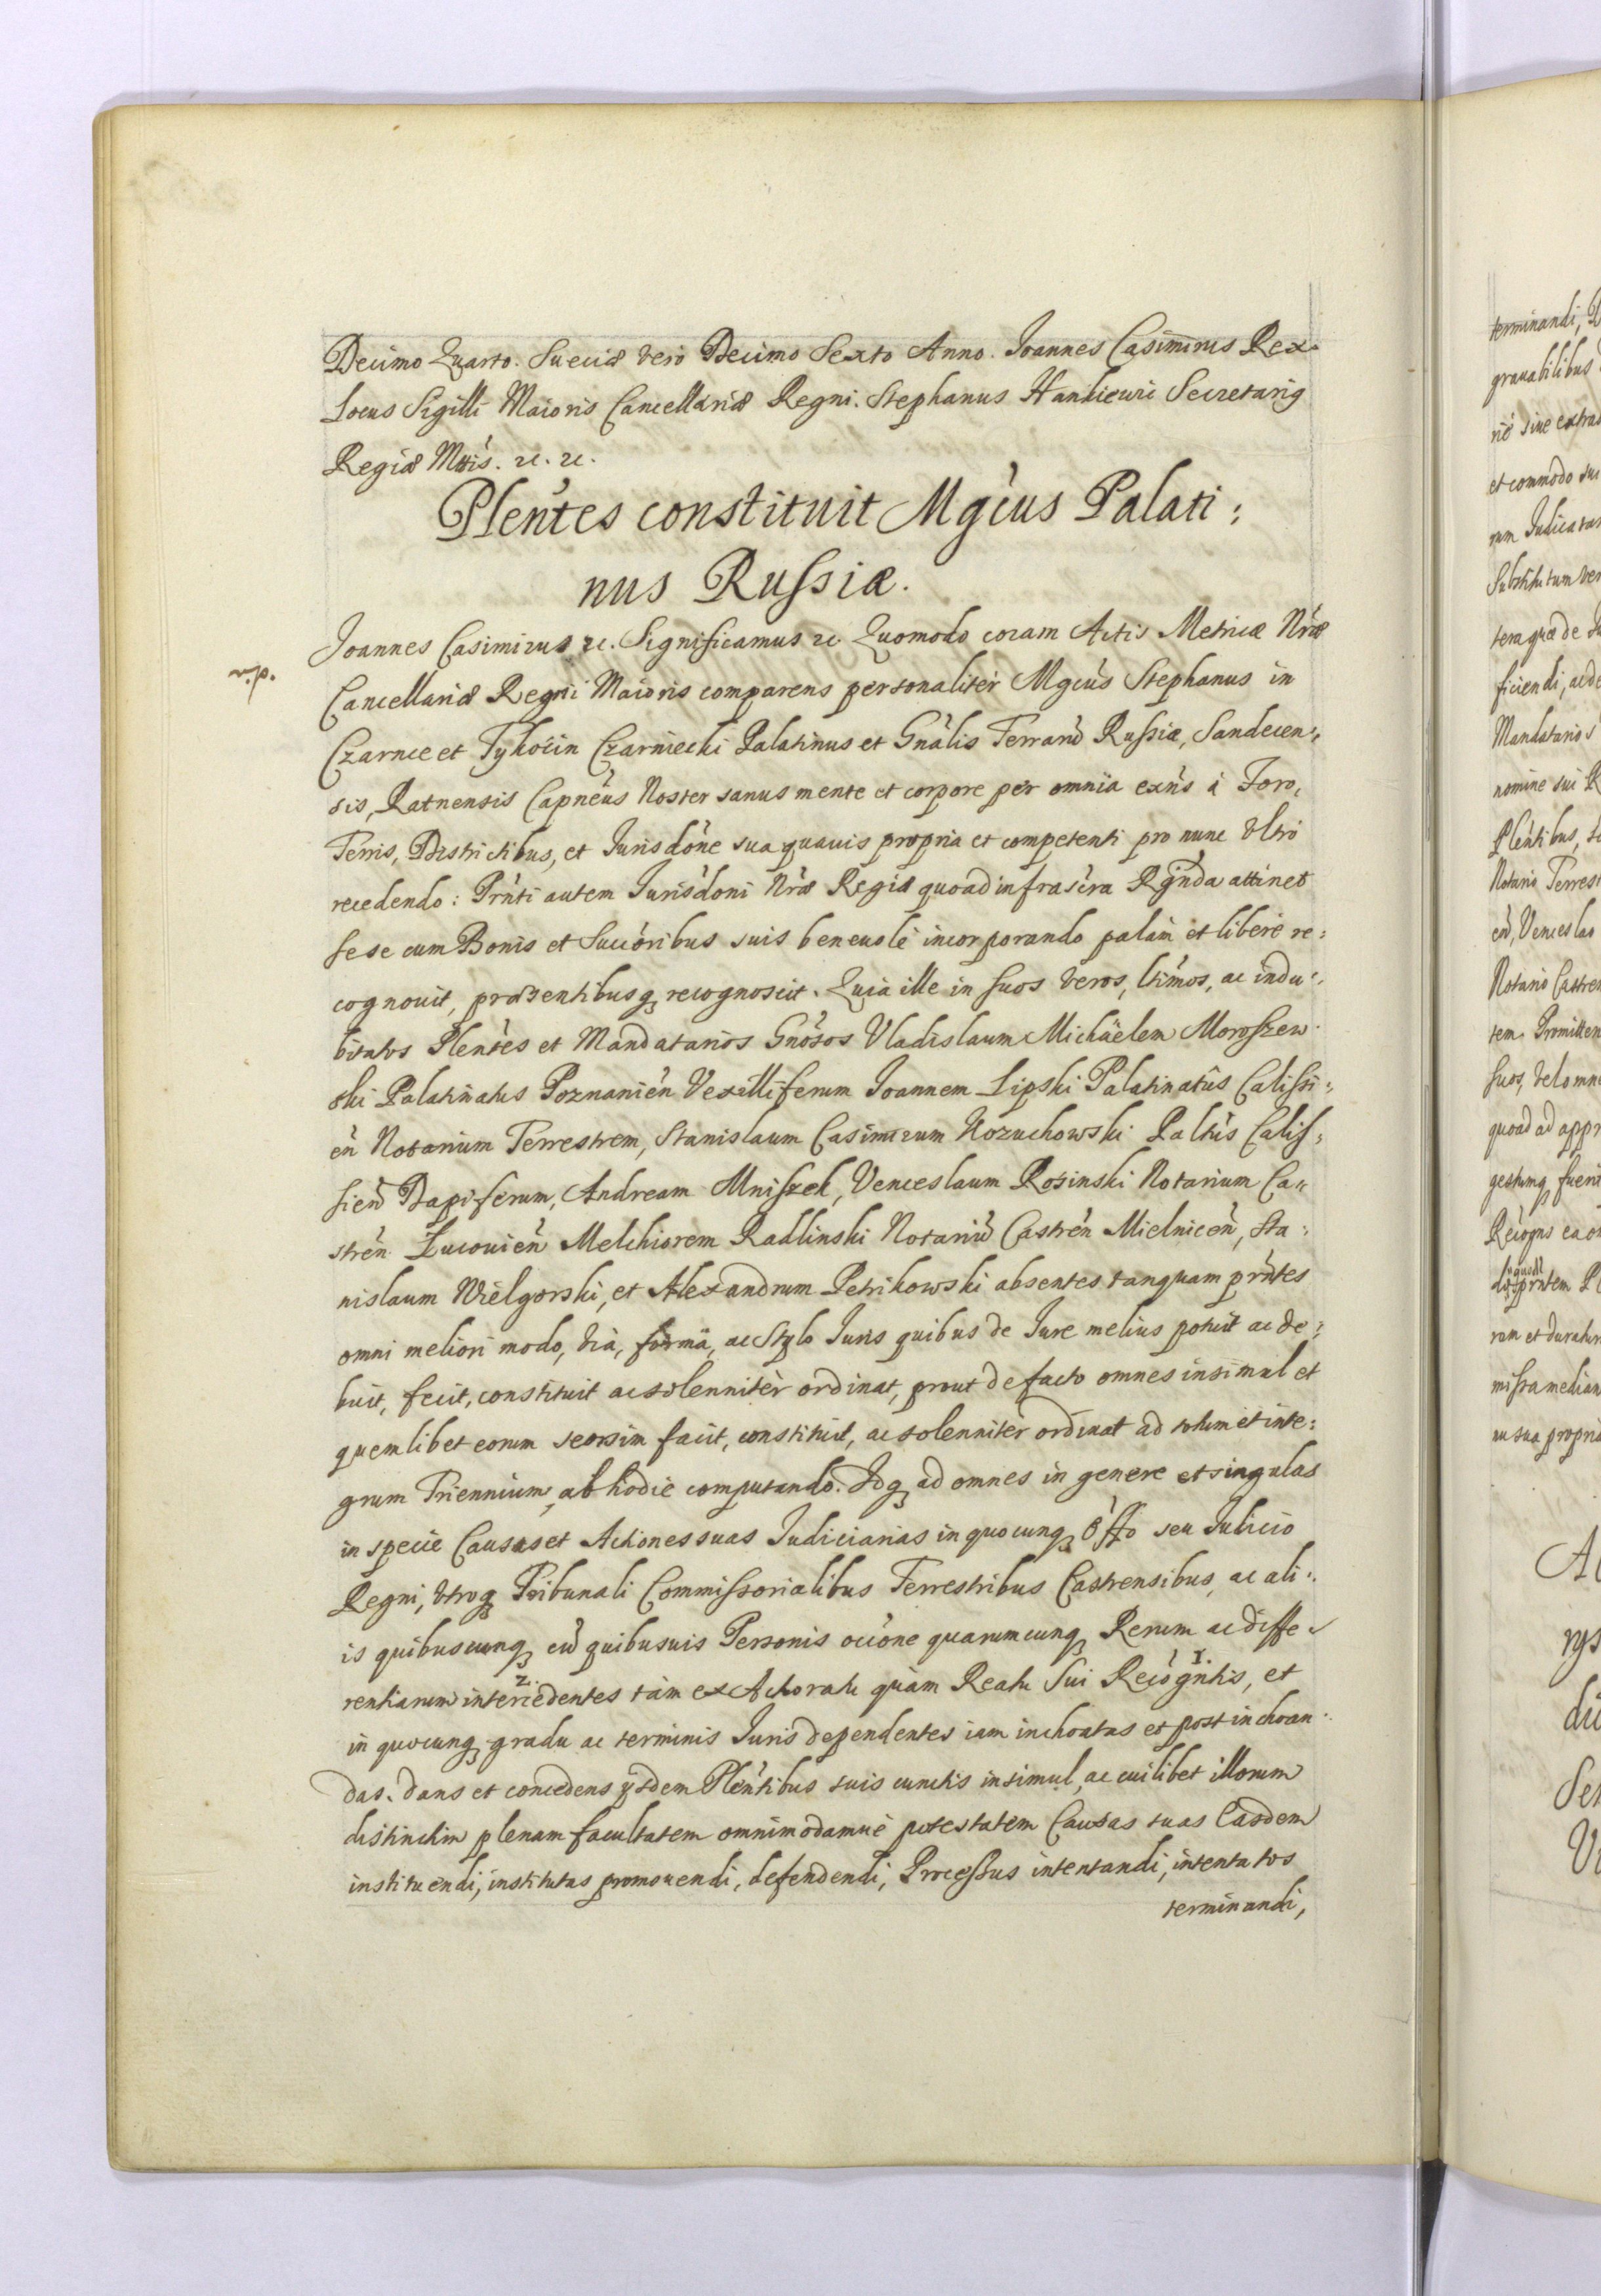 Decimo Quarto. Sueciæ vero Decimo Sexto Anno. Joannes Casimirus Rex.
Locus Sigilli Maioris Cancellariæ Regni. Stephanus Hankiewi Secretarig
Regiæ Mttis. ꝛc. ꝛc.
Plentes constituit Mgcus Palati:
nus Russiæ.
Joannes Casimirus ꝛc. Significamus ꝛc. Quomodo coram Actis Metricæ Nræ
r.p.
Cancellariæ Regni Maioris comparens personaliter Mgcus Stephanus in
Czarnce et Tykocin Czarniecki Palatinus et Gnalis Terrarũ Russiæ, Sandecen:
sis, Ratnensis Capneus Noster sanus mente et corpore per omnia exns à Foro,
Terris, Districtibus, et Jurisdone sua quauis propria et competenti pro nunc Vltrò
recedendo: Prnti autem Jurisdoni Nræ Regiæ quoad infrascra Rgnda attinet
sese cum Bonis et Succoribus suis beneuolè incorporando palàm et liberè re:
cognouit, præsentibusq recognoscit. Quia ille in suos veros, ltimos, ac indu:
bitatos Plentes et Mandatarios Gnosos Vladislaum Michäelem Moroszew:
ski Palatinatus Poznanień Vexilliferum Joannem Lipski Palatinatûs Calissi:
eń Notarium Terrestrem, Stanislaum Casimirum Kozuchowski Paltûs Calis:
sień Dapiferum, Andream Mniszek, Venceslaum Rosinski Notarium Ca:
streń Lucouień Melchiorem Radlinski Notariũ Castreń Mielniceń, Sta:
nislaum Wielgorski, et Alexandrum Petrikowski absentes tanquam prntes
omni meliori modo, viâ, formâ, ac Stylo Juris quibus de Jure melius potuit ac de:
buit, fecit, constituit ac solenniter ordinat, prout de facto omnes insimul et
quemlibet eorum seorsim facit, constituit, ac solenniter ordinat ad totum et inte:
grum Triennium, ab hodie computando. Idq ad omnes in genere et singulas
in specie Causas et Actiones suas Judiciarias in quocunq Offo seu Judicio
Regni, vtroq Tribunali Commissorialibus Terrestribus Castrensibus, ac ali:
is quibuscunq cũ quibusuis Personis occone quarumcunq Rerum ac diffe:
rentiarum intercedentes tàm ex Actoratu quàm Reatu Sui Recogntis, et
in quocunq gradu ac terminis Juris dependentes iam inchoatas et post inchoan:
das. Dans et concedens ysdem Plentibus suis cunctis insimul, ac cuilibet illorum
distinctim plenam facultatem omnimodamuè potestatem Causas suas Easdem
instituendi, institutas promouendi, defendendi, Processus intentandi, intentatos
terminandi,